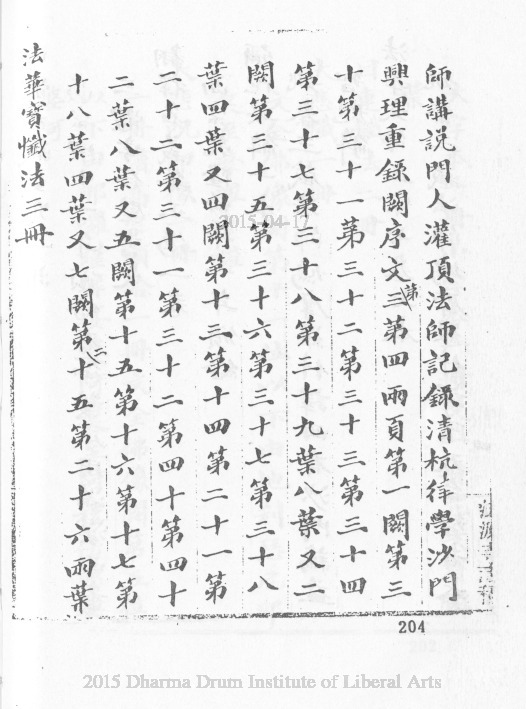 師講說門人灌頂法師記錄清杭待學沙門
興理重錄闕序文三第四兩頁第一闕第三
第
十第三十一第三十二第三十三第三十四
第三十七第三十八第三十九葉八葉又二
闕第三十五第三十六第三十七第三十八
葉四葉又四闕第十三第十四第二十一第
二十二第三十一第三十二第四十第四十
二葉八葉又五闕第十五第十六第十七第
十八葉四葉又七闕第十五第二十六兩葉
二
法華寶懺法三冊
2015-04-17
204
2015 Dharma Drum Institute of Liberal Arts